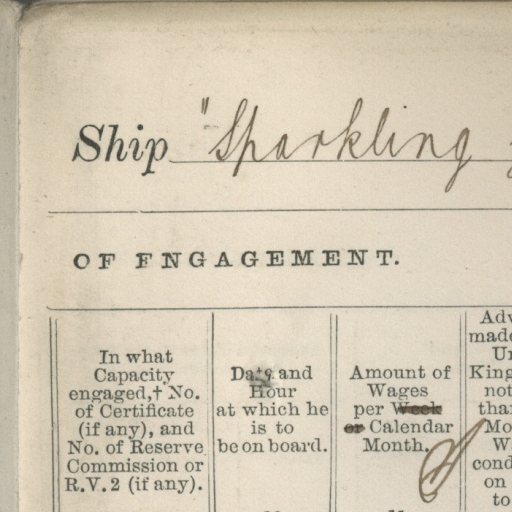 Ship "Sparkling
OF ENGAGEMENT.
In what
Capacity
engaged,† No.
of Certificate
(if any), and
No. of Reserve
Commission or
R.V. 2 (if any).
Date and
Hour
at which he
is to
be on board.
Amount of
Wages
per Week
or Calendar
Month.
Adv
made
Un
King
not
than
Mo
W
cond
on
to